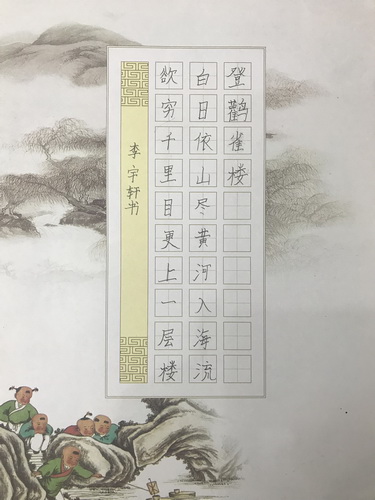 登鹳雀楼
白日依山尽黄河入海流
欲穷千里目更上一层楼
李宇轩书